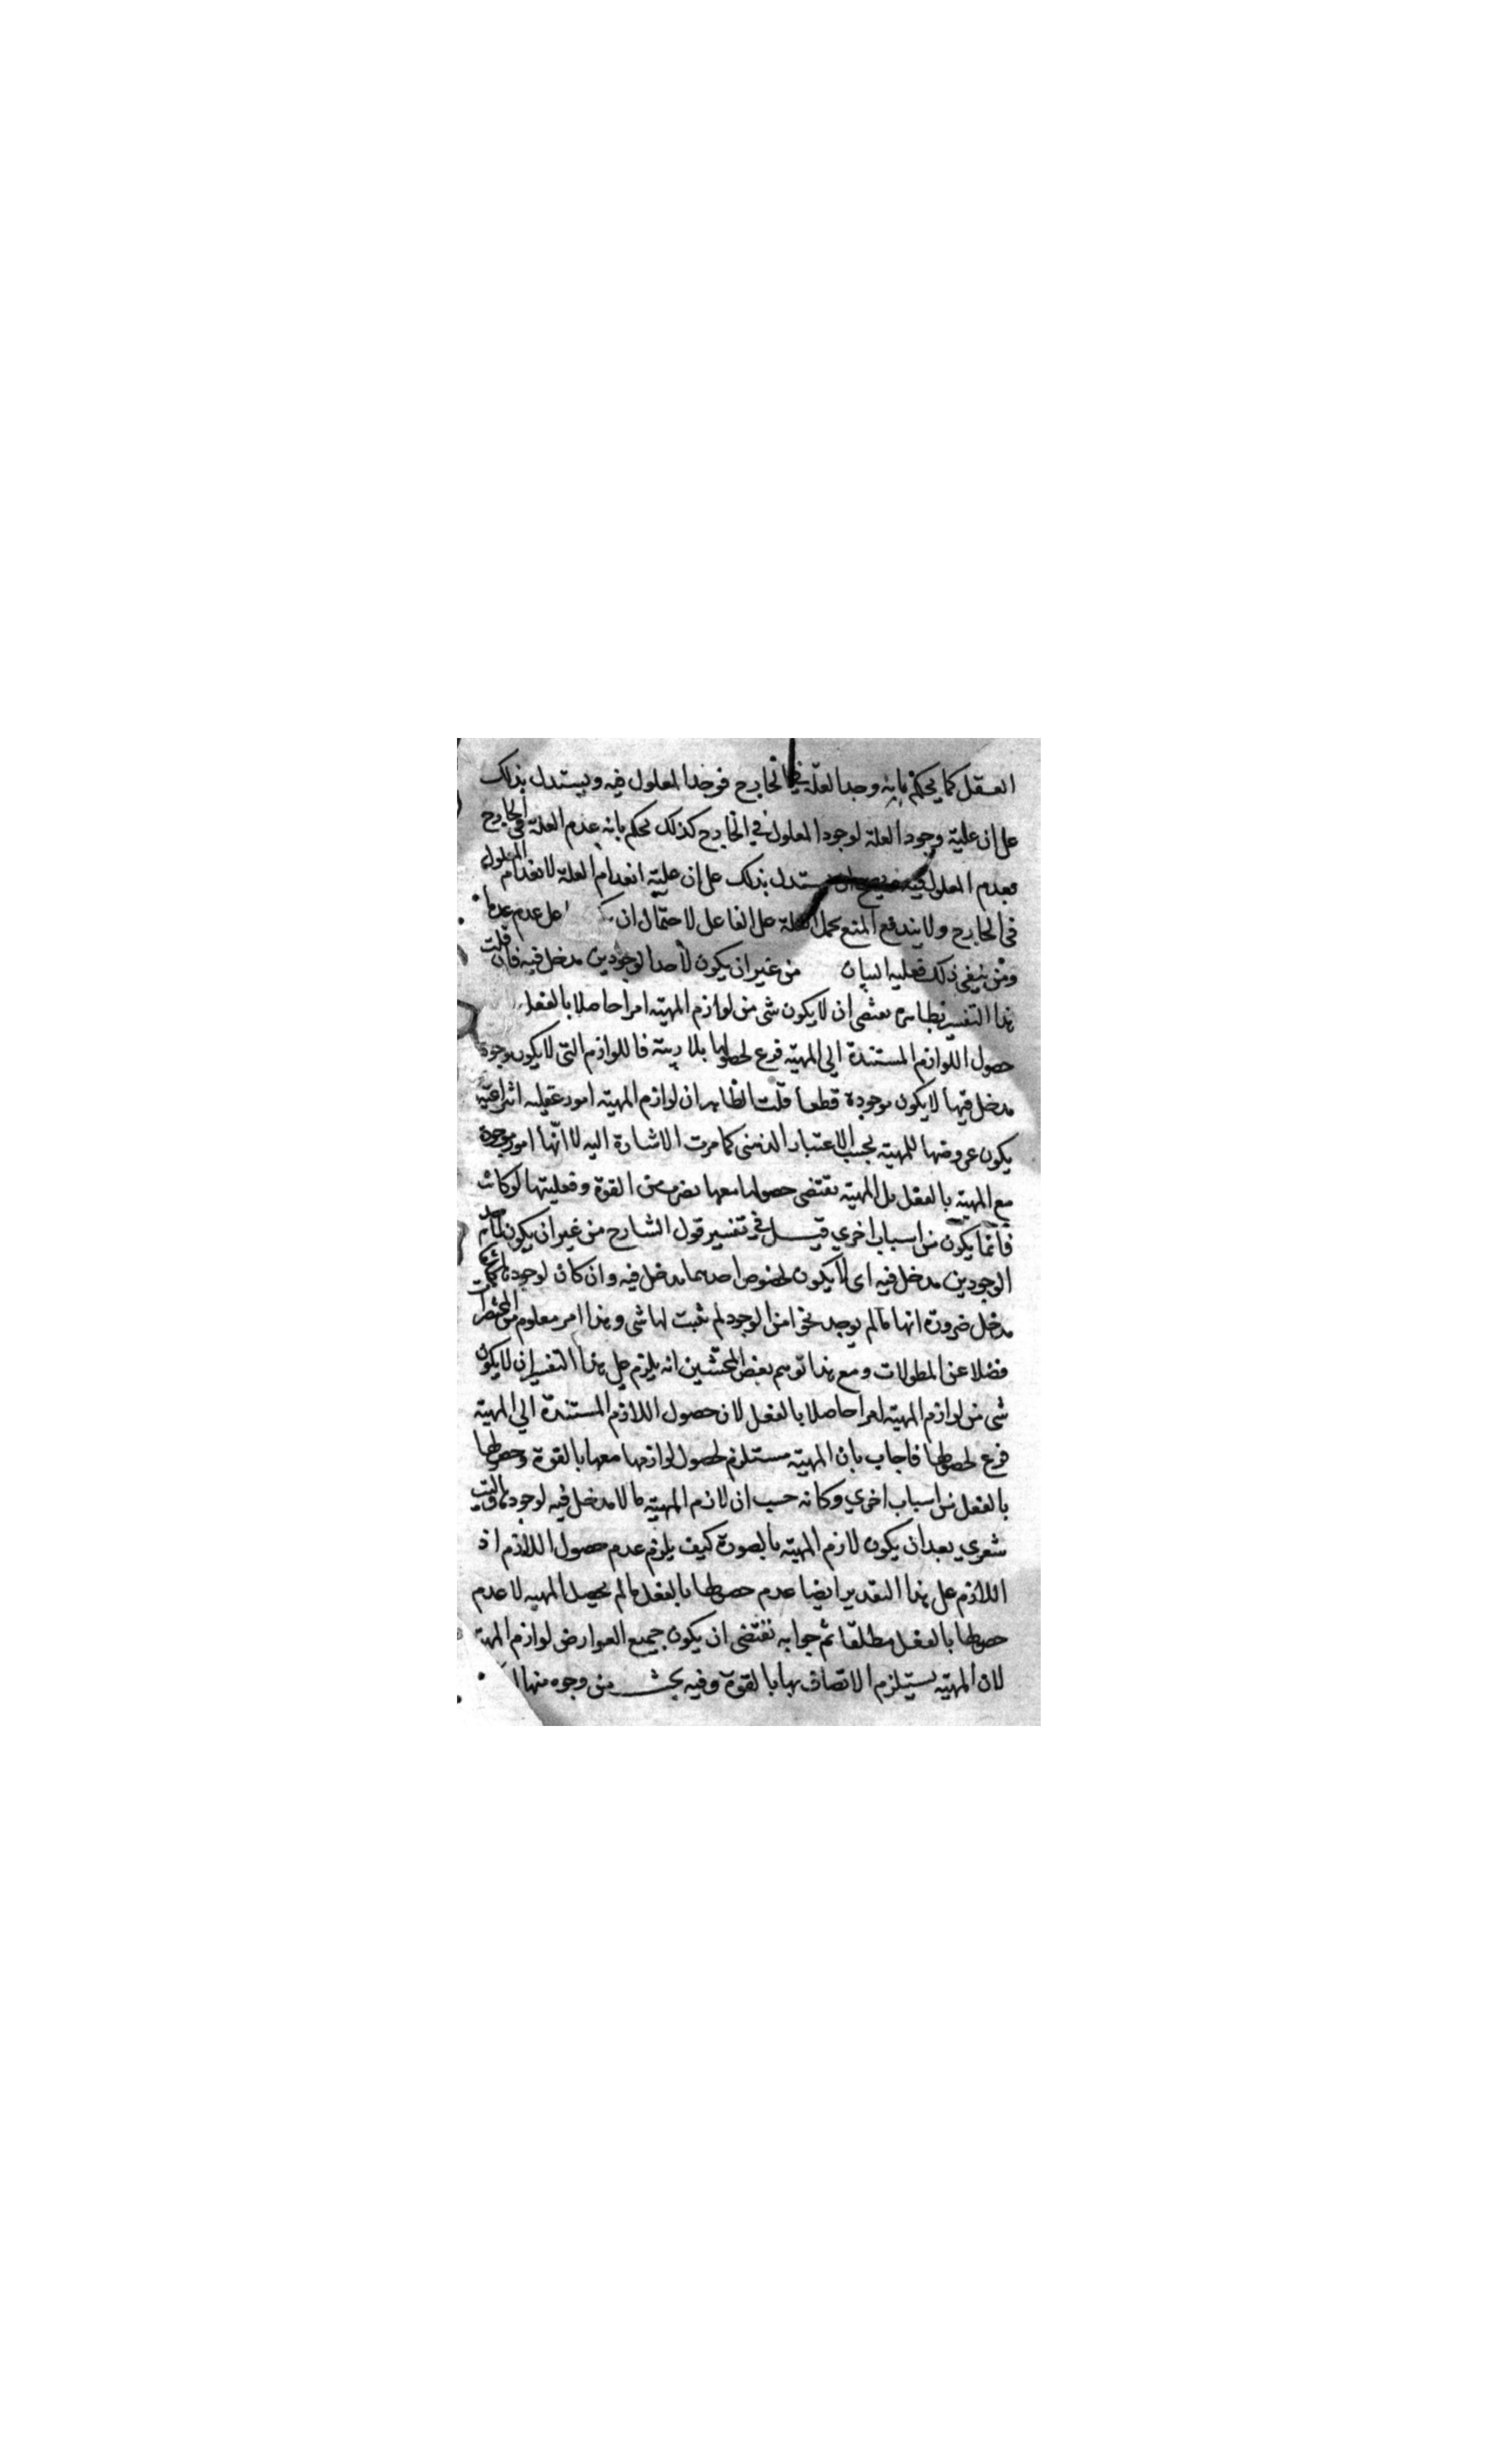 العقل كما يحكم بانه وجد العلة في الخارج فوجد المعلول فيه ويستدل بذلك
على ان علية وجود العلة لوجود المعلول في الخارج كذلك يحكم بانه عدم العلة في الخارج
فعدم المعلول فيه فيصح ان يستدل بذلك على ان علية انعدام العلة لانعدام المعلول
في الخارج ولا يندفع المنع بحمل العلة على الفاعل لاحتمال ان على عدم عدمها
ومن ينفي ذلك فعليه البيان من غير ان يكون لاحد الوجودين مدخل فيه فان قلت
هذا التفسير بظاهره يقتضي ان لا يكون شي من لوازم المهية امرا حاصلا بالفعل
حصول اللوازم المستندة الى المهية فرع لحصولها بلا ريبة فاللوازم التي لا يكون لوجوده
مدخل فيها لا يكون موجودة قطعا قلت الظاهر ان لوازم المهية امور عقلية انتزاعية
يكون عروضها للمهية بحسب الاعتبار الذهني كما مرت الاشارة اليه لا انها امور موجودة
مع المهية بالفعل بل المهية يقتضي حصولها معها بضرب من القوة وفعليتها لو كانت
فانما يكون من اسباب اخرى قيل في تفسير قول الشارح من غير ان يكون لاحد
الوجودين مدخل فيه اى لا يكون لخصوص احدهما مدخل فيه وان كان لوجود
مدخل ضرورة انها ما لم يوجد نحوا من الوجود لم يثبت لها شي وهذا امر معلوم من المختصرات
فضلا عن المطولات ومع هذا توهم بعض المحشين انه يلزم على هذا التفسير ان لا يكون
شي من لوازم المهية امرا حاصلا بالفعل لان حصول اللازم المستندة الى المهية
فرع لحصولها فاجاب بان المهية مستلزم لحصول لوازمها معها بالقوة وحصولها
بالفعل من اسباب اخرى وكانه حسب ان لازم المهية ما لا مدخل فيه لوجودها وليت
شعري بعد ان يكون لازم المهية بالصورة كيف يلزم عدم حصول اللازم اذ
اللازم على هذا التقدير ايضا عدم حصولها بالفعل ما لم يحصل المهية لا عدم
حصولها بالفعل مطلقا ثم جوابه يقتضي ان يكون جميع العوارض لوازم المهية
لان المهية يستلزم الاتصاف بها بالقوة وفيه بحث من وجوه منها